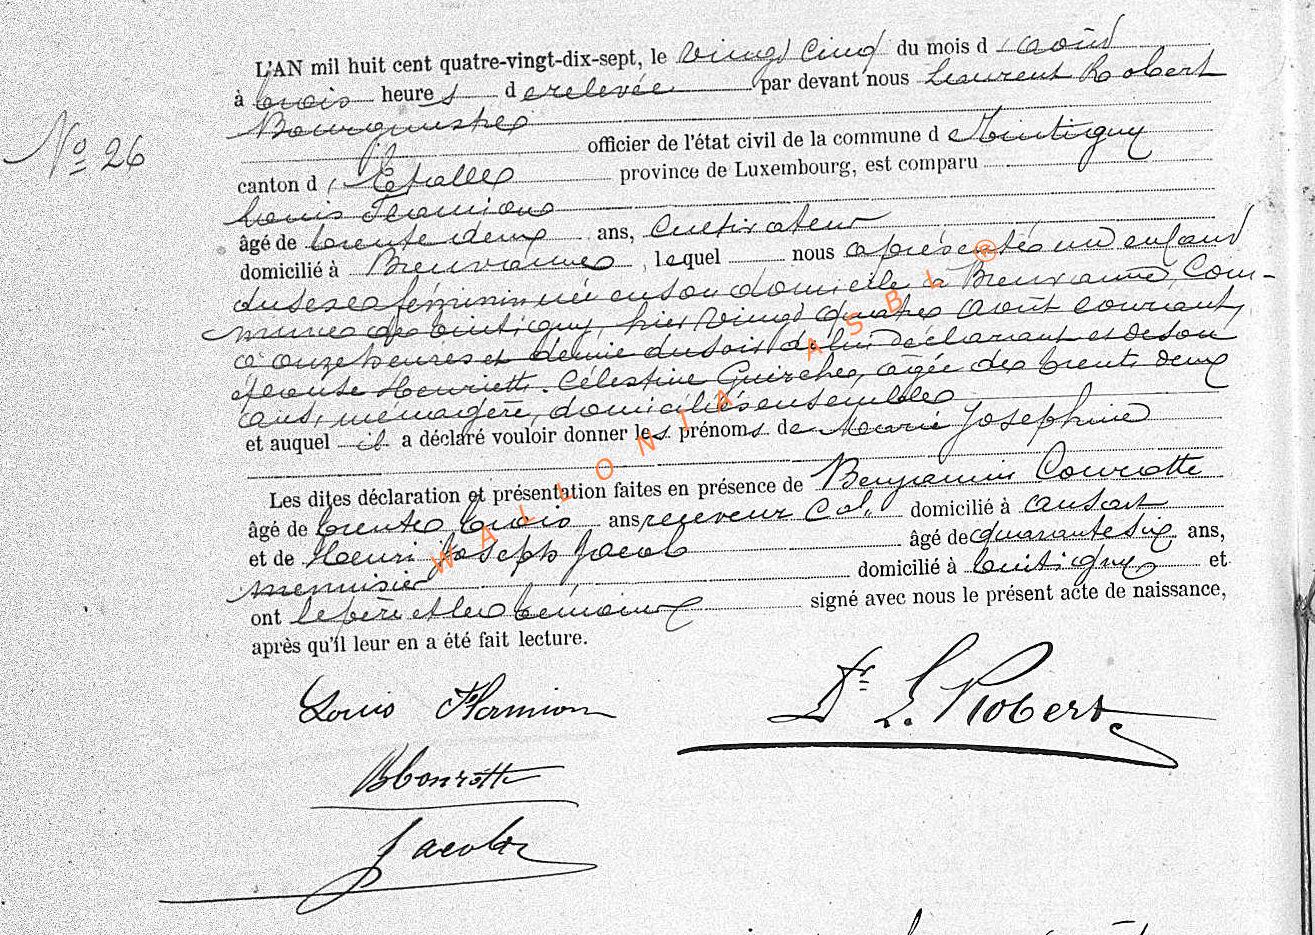 L'AN mil huit cent quatre-vingt-dix-sept, le vingt cinq du mois d'août
à trois heures de relevée par devant nous Laurent Robert
Bourgmestre
officier de l'état civil de la commune de Tintigny
Nº 26
canton d'Etalle province de Luxembourg, est comparu
Louis
âgé de trente deux ans, Cultivateur
domicilié à Breuvanne, lequel nous a présenté un enfant
du sexe féminin né en son domicile à Breuvanne, Com-
mune de Tintigny, hier vingt quatre août courant,
à onze heures et demie du soir de lui déclarant et de son
épouse Henriette Célestine, âgée de trente deux
ans, ménagère, domiciliés ensemble
et auquel il a déclaré vouloir donner les prénoms de Marie Joséphine
Les dites déclaration et présentation faites en présence de Benjamin
âgé de trente trois ans receveur domicilié à Ansart
et de Henri Joseph Jacob âgé de quarante six ans,
menuisier domicilié à Tintigny et
ont le père et les témoins signé avec nous le présent acte de naissance,
après qu'il leur en a été fait lecture.
Louis
Dr L. Robert
Jacob
WALLONIA ASBL ®